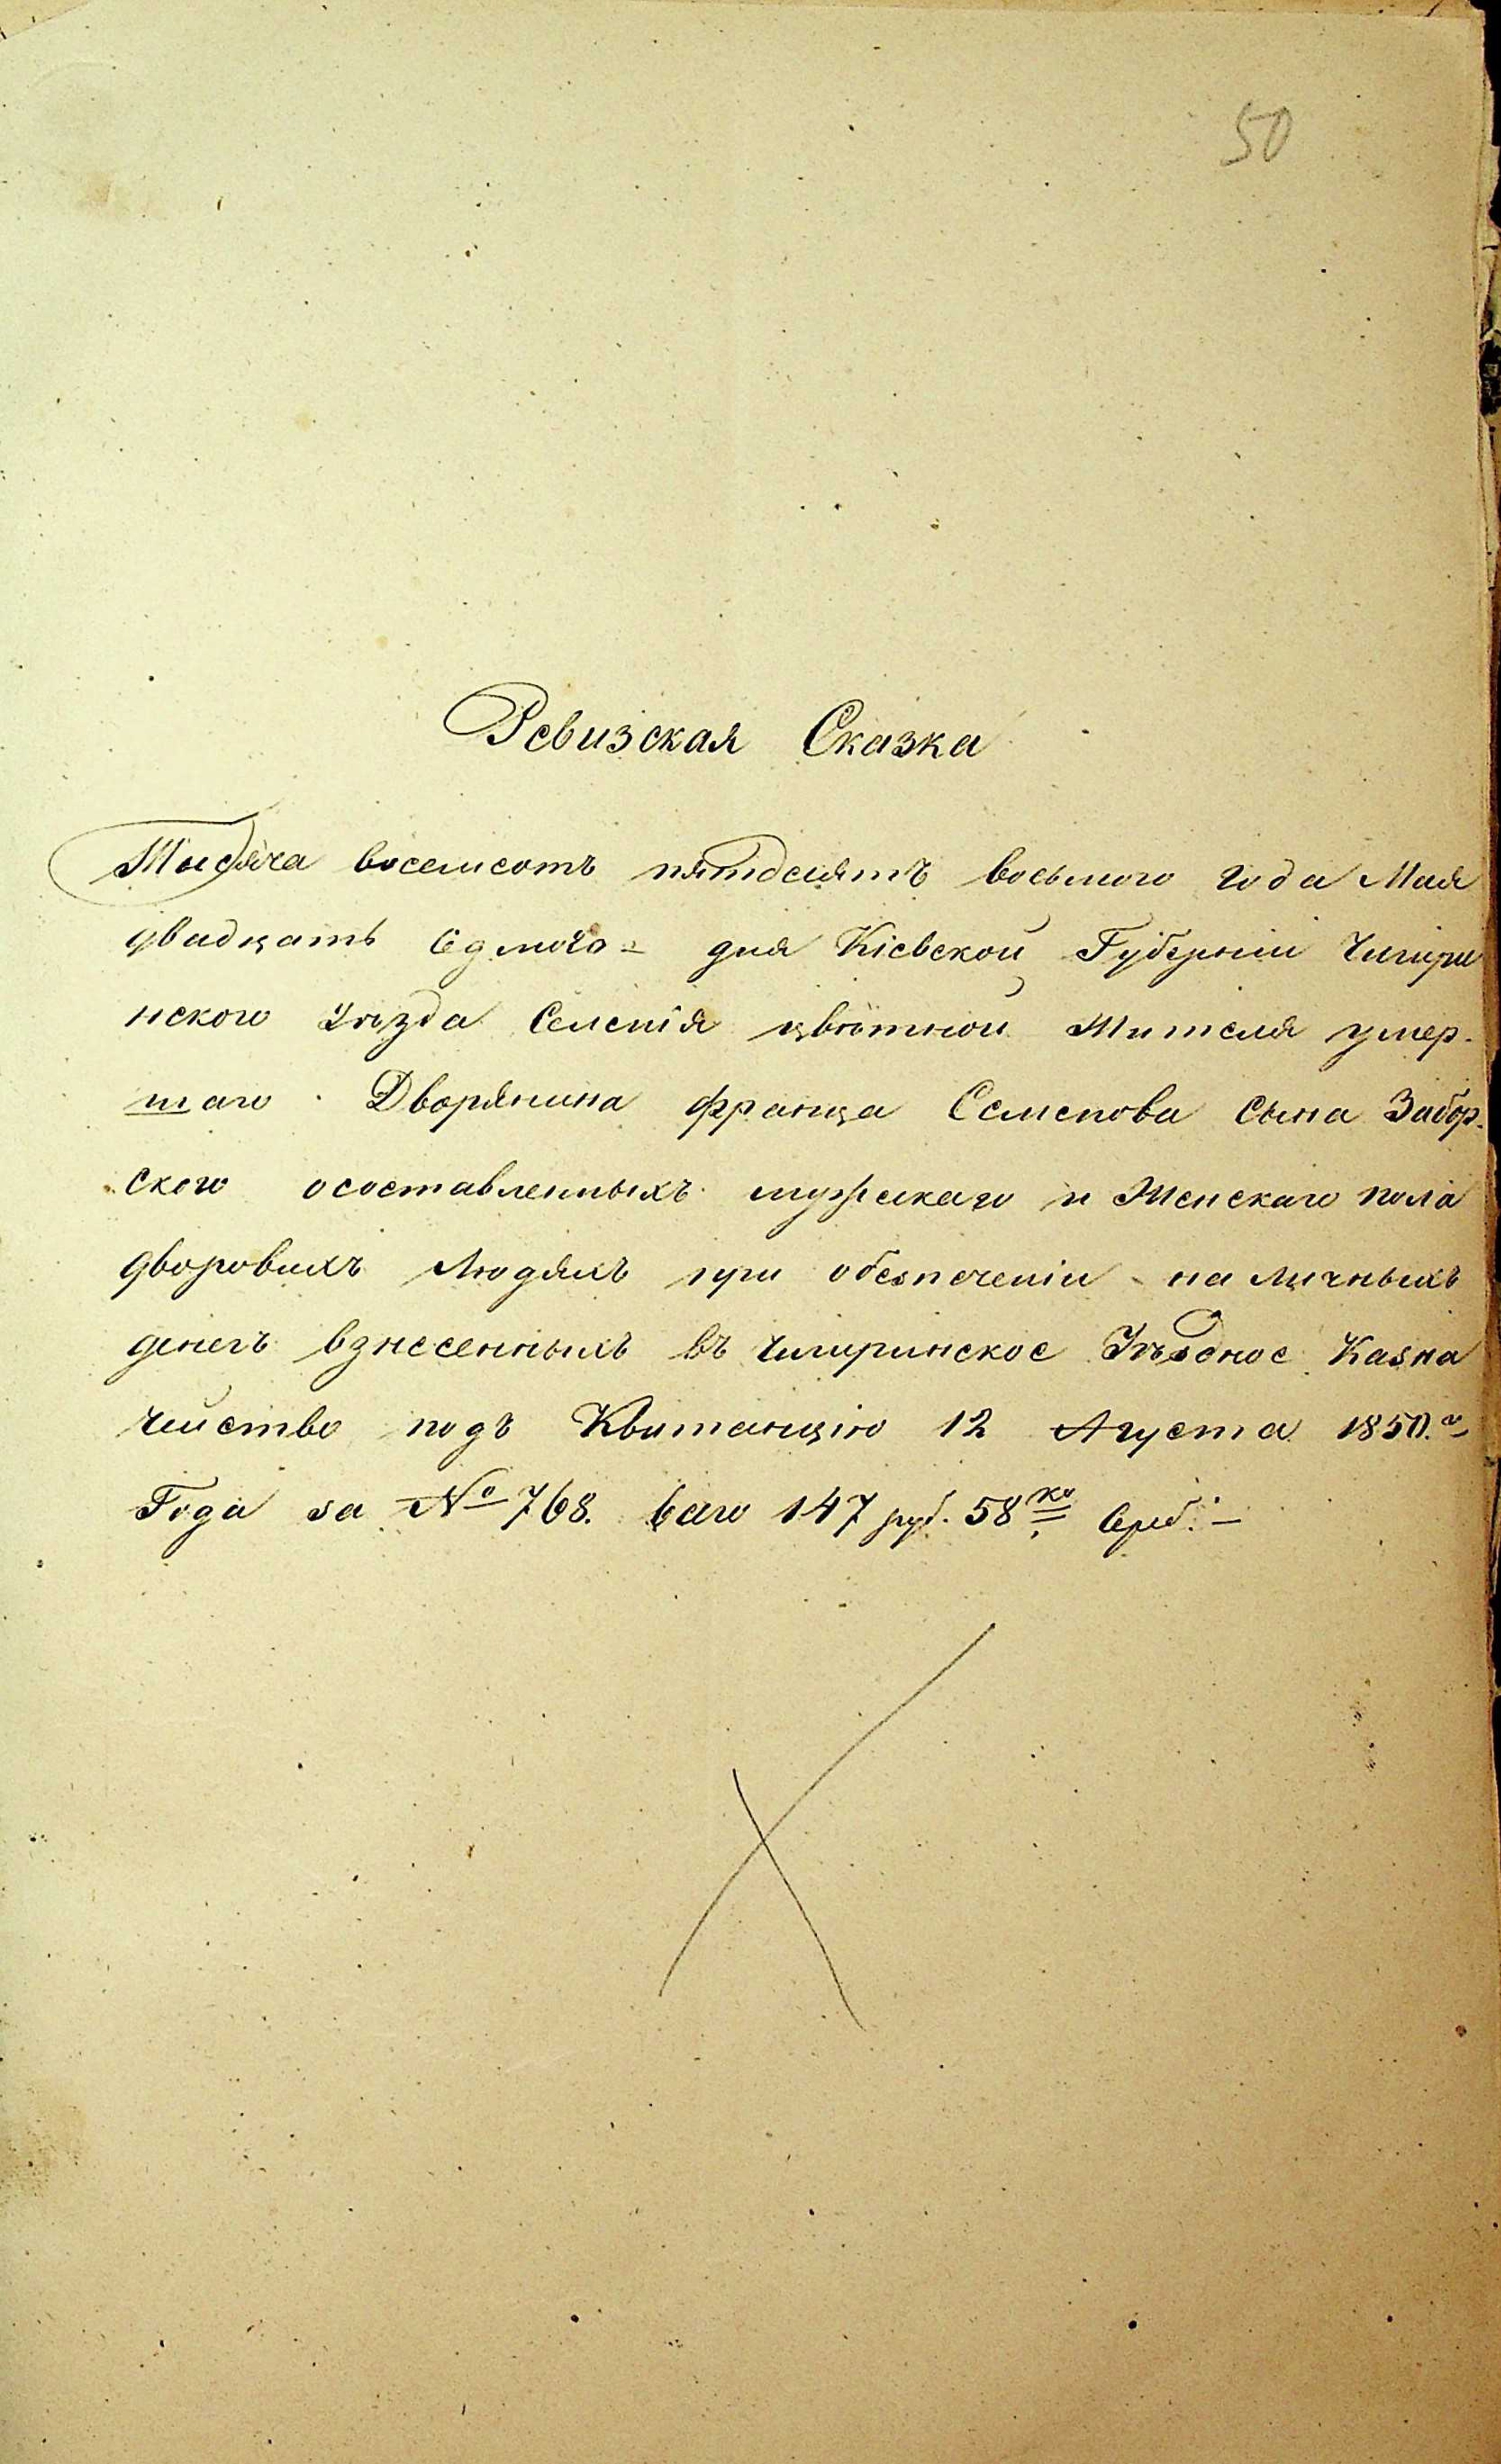 50
Ревизская Сказка
Тысяча восемсотъ пятдесятъ восьмого года Мая
двадцать седмого = дня Кіевской Губерніи Чигири
нского Уѣзда Селенія цвѣтной Жителя умер-
шаго Дворянина Франца Семенова сына Забор-
ского осоставленныхъ мужскаго и Женскаго пола
дворовыхъ Людяхъ при обезпеченіи наличныхъ
денегъ взнесенныхъ въ Чигиринское Уѣздное Казна
чейство подъ Квитанцію 12 Августа 1850.го
Года за № 768. 147 руб. 58 ко Сереб. —